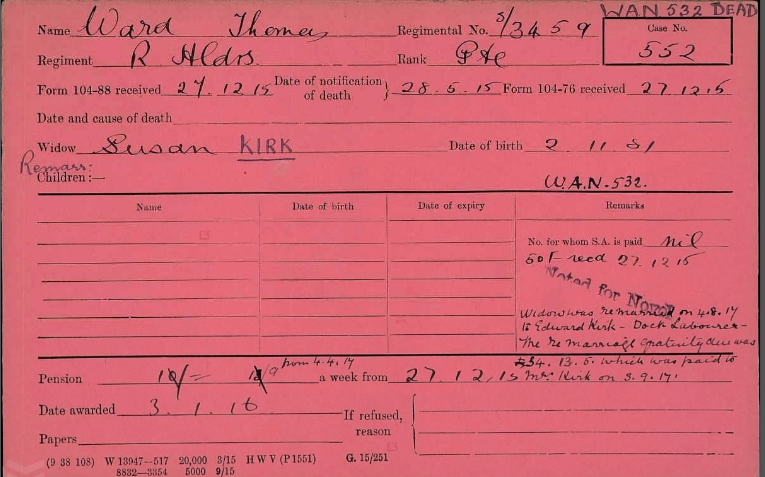 WAN 532 DEAD
Name Ward Thomas Regimental No. S/3459 Case No.
552
Regiment R Hldrs. Rank Pte
Form 104-88 received 27.12.15 Date of notification of death } 28.5.15 Form 104-76 received 27.12.15
Date and cause of death
Widow Susan KIRK Date of birth 2 11 81
Remarr:
Children:— W.A.N-532.
Name Date of birth Date of expiry Remarks
No. for whom S.A. is paid nil
50F recd 27.12.15
Noted for Novr
Widow was remarried on 4.8.17
to Edward Kirk - Dock Labourer -
The remarriage gratuity due was
£34. 13. 5. which was paid to
Mrs Kirk on 3.9.17.
from 4.4.17
Pension 10/= a week from 27.12.15
Date awarded 3.1.16 If refused, reason
Papers
(9 38 108) W 13947—517 20,000 3/15 H W V (P 1551) G. 15/251
8832—3354 5000 9/15